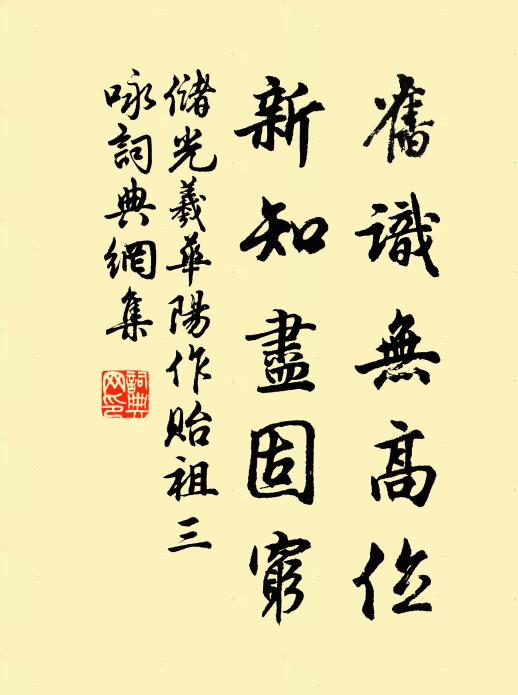 舊識無高位
新知盡固窮
儲光羲華陽作貽祖三
咏詞典網集
詞典
网印